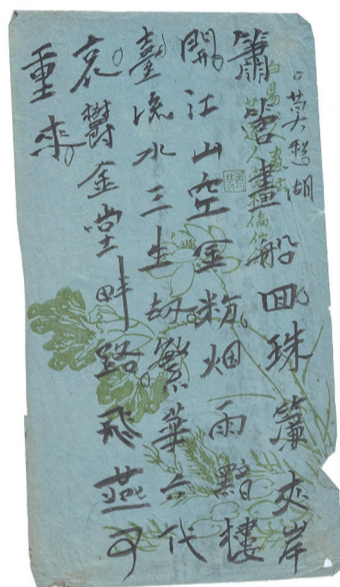 。莫愁湖
簫管畫船回珠簾夾岸
開江山空金粉烟雨黯樓
臺流水三生劫繁華六代
哀鬱金堂畔路飛燕可
重來